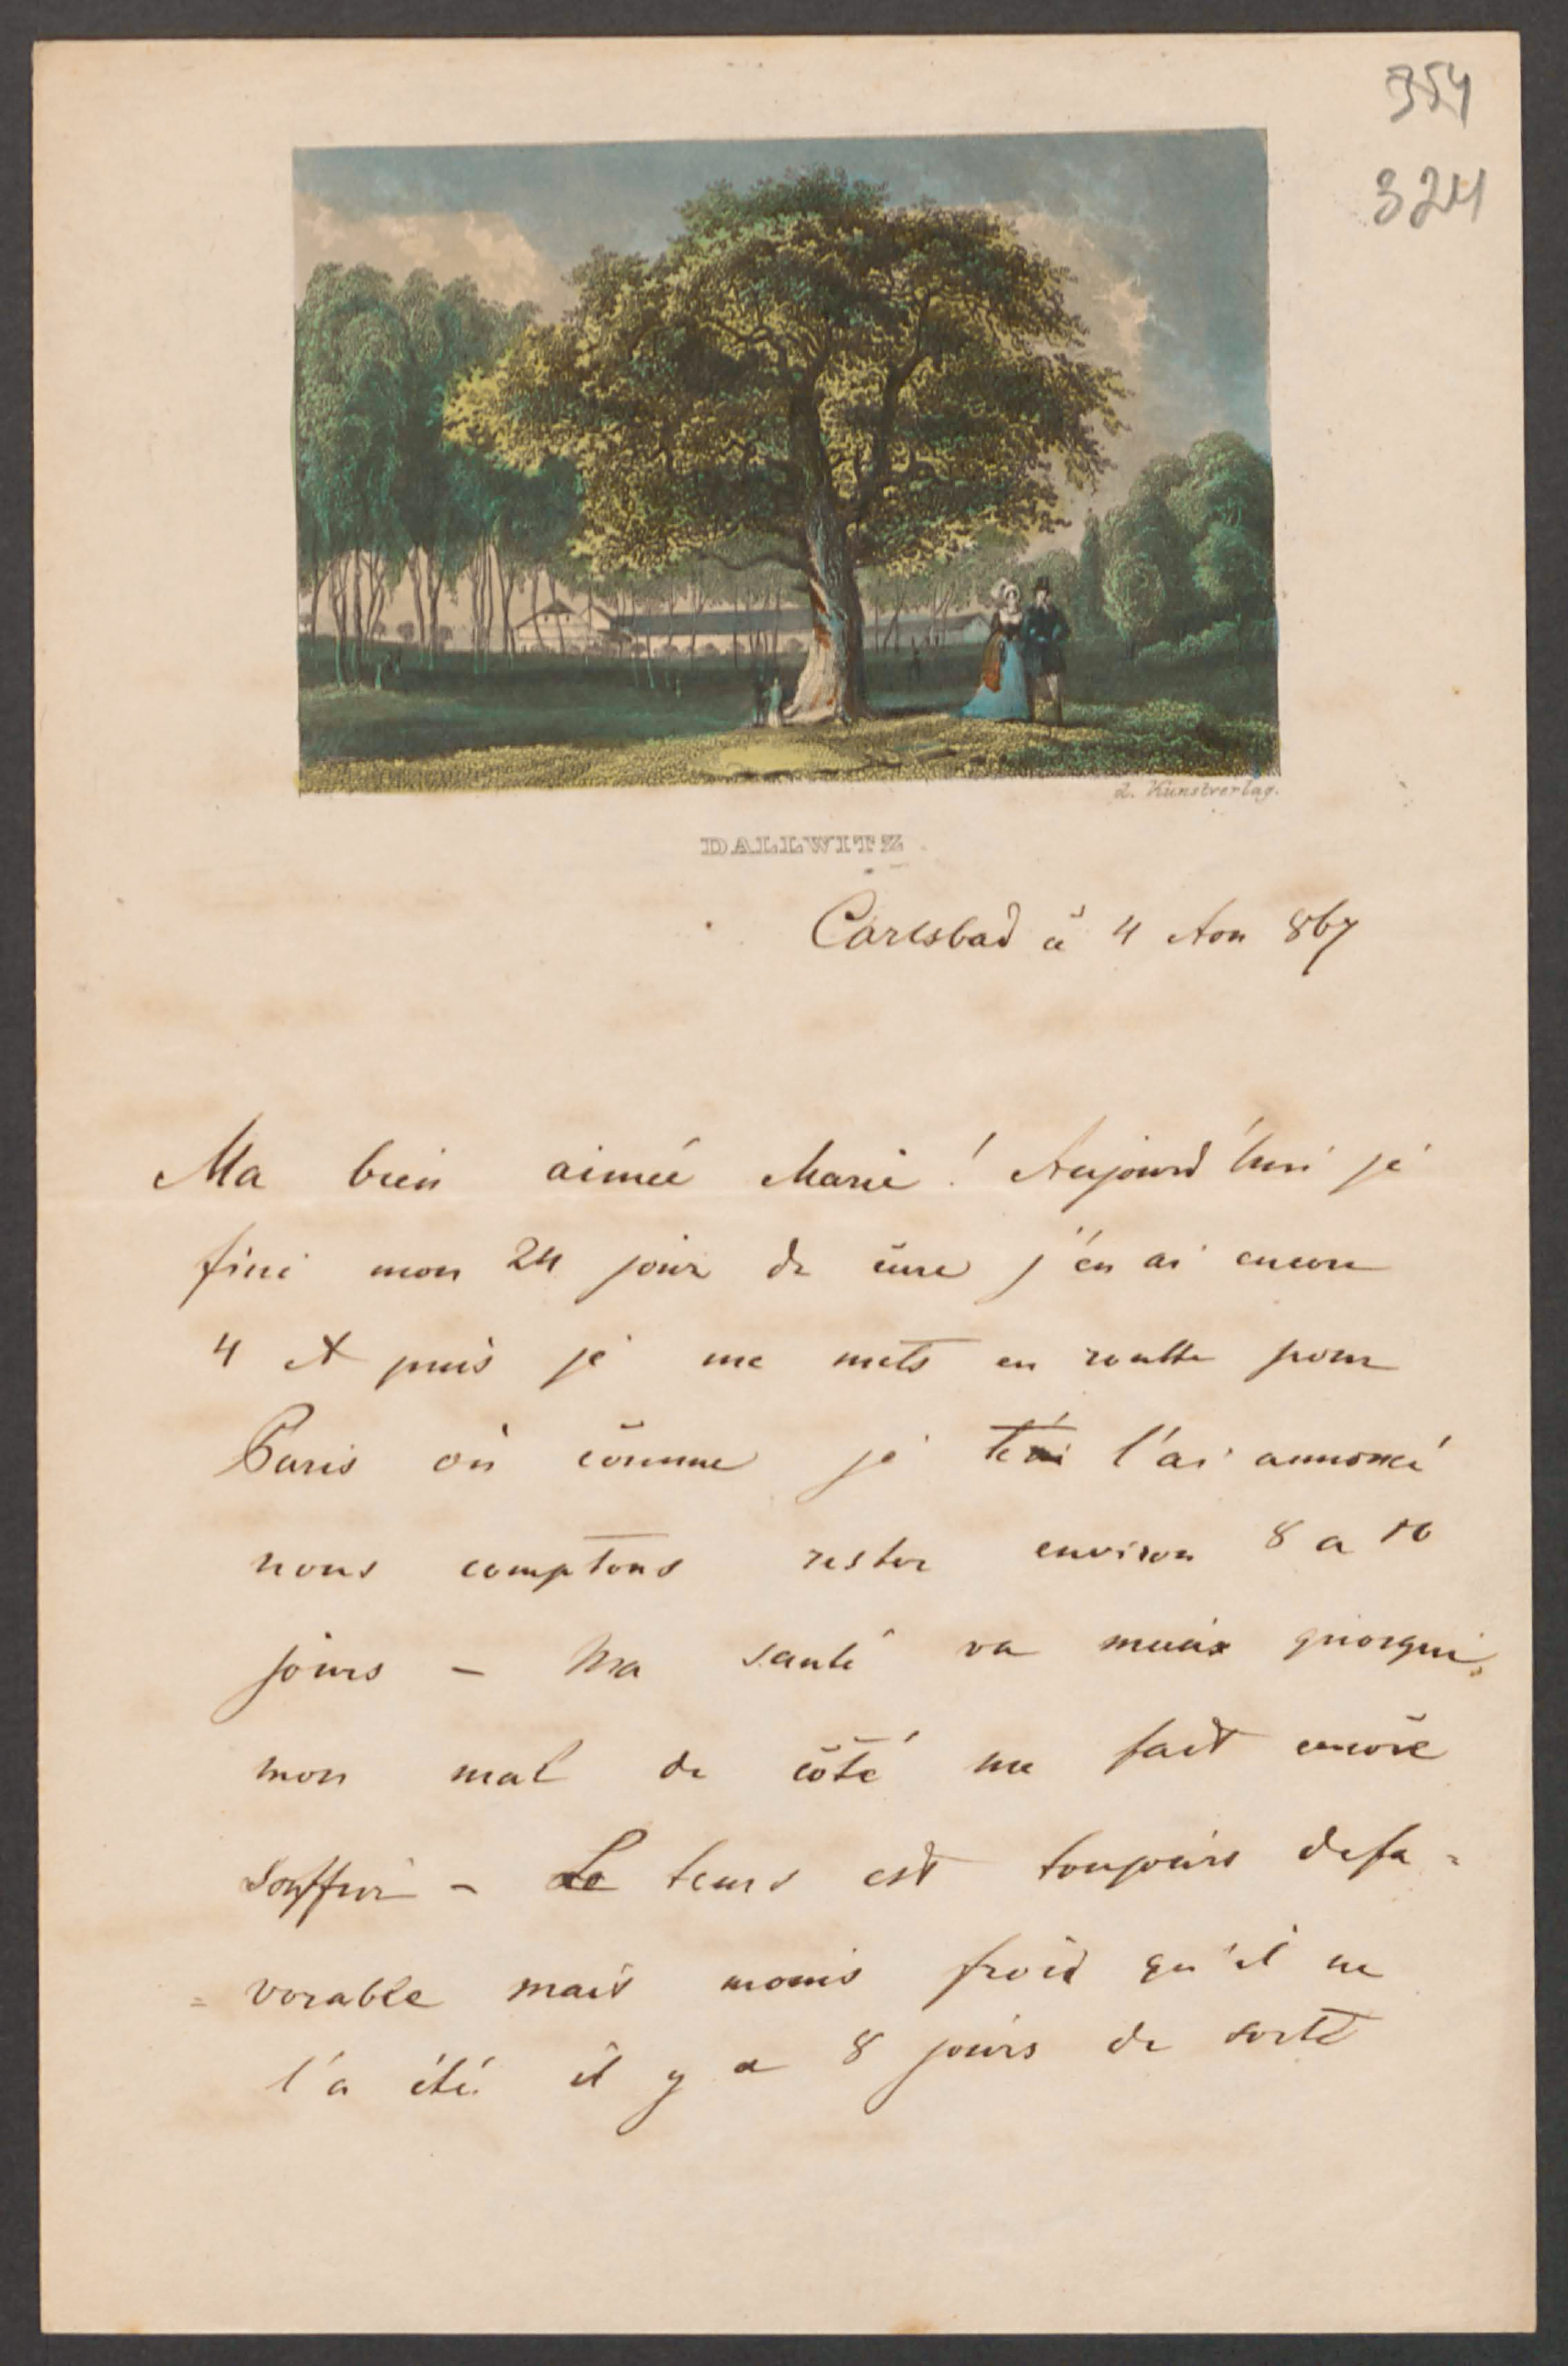 354
324
L. Kunstverlag.
DALLWITZ.
Carlsbad à 4 Aou 867
Ma bien aimée Marie! Aujourd'hui je
fini mon 24 jour de cure j'en ai encore
4 et puis je me mets en routte pour
Paris où comme je te l'ai annoncé
nous comptons rester environ 8 a 10
jours – Ma santé va mieux quoique
mon mal de côté me fait encore
souffrir – Le tems est toujours defa=
=vorable mais moins froid qu'il ne
l'a été il y a 8 jours de sorte